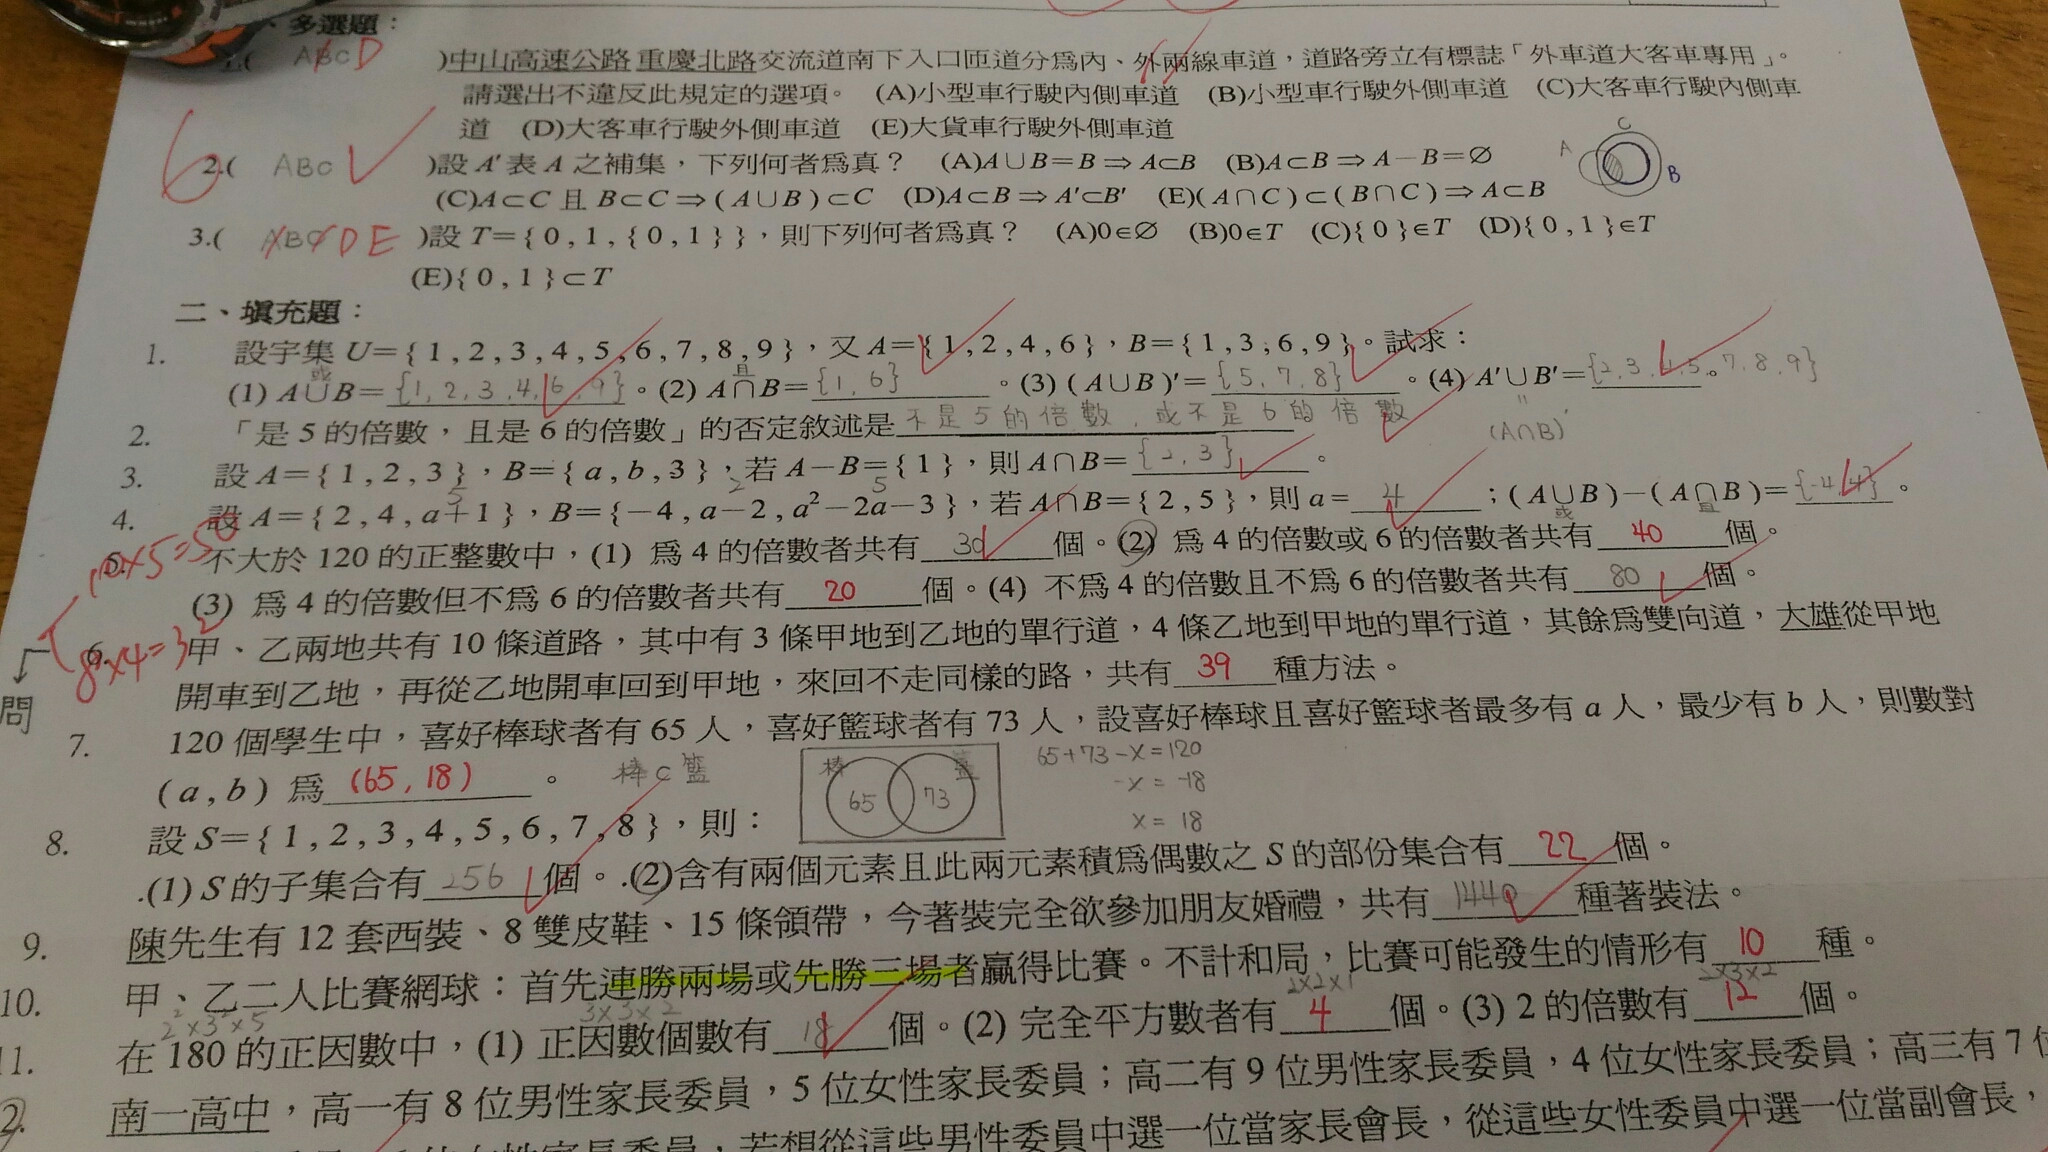 、多選題：
1.( ABCD )中山高速公路 重慶北路交流道南下入口匝道分為內、外兩線車道，道路旁立有標誌「外車道大客車專用」。
請選出不違反此規定的選項。 (A)小型車行駛內側車道 (B)小型車行駛外側車道 (C)大客車行駛內側車
道 (D)大客車行駛外側車道 (E)大貨車行駛外側車道
6
2.( ABC )設 A′表 A 之補集，下列何者為真？ (A)A∪B=B⇒A⊂B (B)A⊂B⇒A−B=∅
C A B
(C)A⊂C 且 B⊂C⇒(A∪B)⊂C (D)A⊂B⇒A′⊂B′ (E)(A∩C)⊂(B∩C)⇒A⊂B
3.( ABCDE )設 T={0,1,{0,1}}，則下列何者為真？ (A)0∈∅ (B)0∈T (C){0}∈T (D){0,1}∈T
(E){0,1}⊂T
二、填充題：
1. 設宇集 U={1,2,3,4,5,6,7,8,9}，又 A={1,2,4,6}，B={1,3,6,9}。試求：
或 且
(1) A∪B={1,2,3,4,6,9}。(2) A∩B={1,6}。(3) (A∪B)′={5,7,8}。(4) A′∪B′={2,3,4,5,7,8,9}。
" (A∩B)′
2. 「是 5 的倍數，且是 6 的倍數」的否定敘述是不是5的倍數，或不是6的倍數
3. 設 A={1,2,3}，B={a,b,3}，若 A−B={1}，則 A∩B={2,3}。
5 2 5
4. 設 A={2,4,a+1}，B={−4,a−2,a²−2a−3}，若 A∩B={2,5}，則 a=4；(A∪B)−(A∩B)={-4,4}。
或 且
5. 不大於 120 的正整數中，(1) 為 4 的倍數者共有30個。(2) 為 4 的倍數或 6 的倍數者共有40個。
(3) 為 4 的倍數但不為 6 的倍數者共有20個。(4) 不為 4 的倍數且不為 6 的倍數者共有80個。
10×5=50
8×4=32
問
6. 甲、乙兩地共有 10 條道路，其中有 3 條甲地到乙地的單行道，4 條乙地到甲地的單行道，其餘為雙向道，大雄從甲地
開車到乙地，再從乙地開車回到甲地，來回不走同樣的路，共有39種方法。
7. 120 個學生中，喜好棒球者有 65 人，喜好籃球者有 73 人，設喜好棒球且喜好籃球者最多有 a 人，最少有 b 人，則數對
(a,b) 為(65,18)。
棒⊂籃
棒 籃
65 73
65+73-x=120
-x=-18
x=18
8. 設 S={1,2,3,4,5,6,7,8}，則：
.(1) S 的子集合有256個。.(2)含有兩個元素且此兩元素積為偶數之 S 的部份集合有22個。
9. 陳先生有 12 套西裝、8 雙皮鞋、15 條領帶，今著裝完全欲參加朋友婚禮，共有1440種著裝法。
10. 甲、乙二人比賽網球：首先連勝兩場或先勝三場者贏得比賽。不計和局，比賽可能發生的情形有10種。
2²×3²×5 3×3×2 2×2×1 2×3×2
11. 在 180 的正因數中，(1) 正因數個數有18個。(2) 完全平方數者有4個。(3) 2 的倍數有12個。
2. 南一高中，高一有 8 位男性家長委員，5 位女性家長委員；高二有 9 位男性家長委員，4 位女性家長委員；高三有 7 位
若想從這些男性委員中選一位當家長會長，從這些女性委員中選一位當副會長，